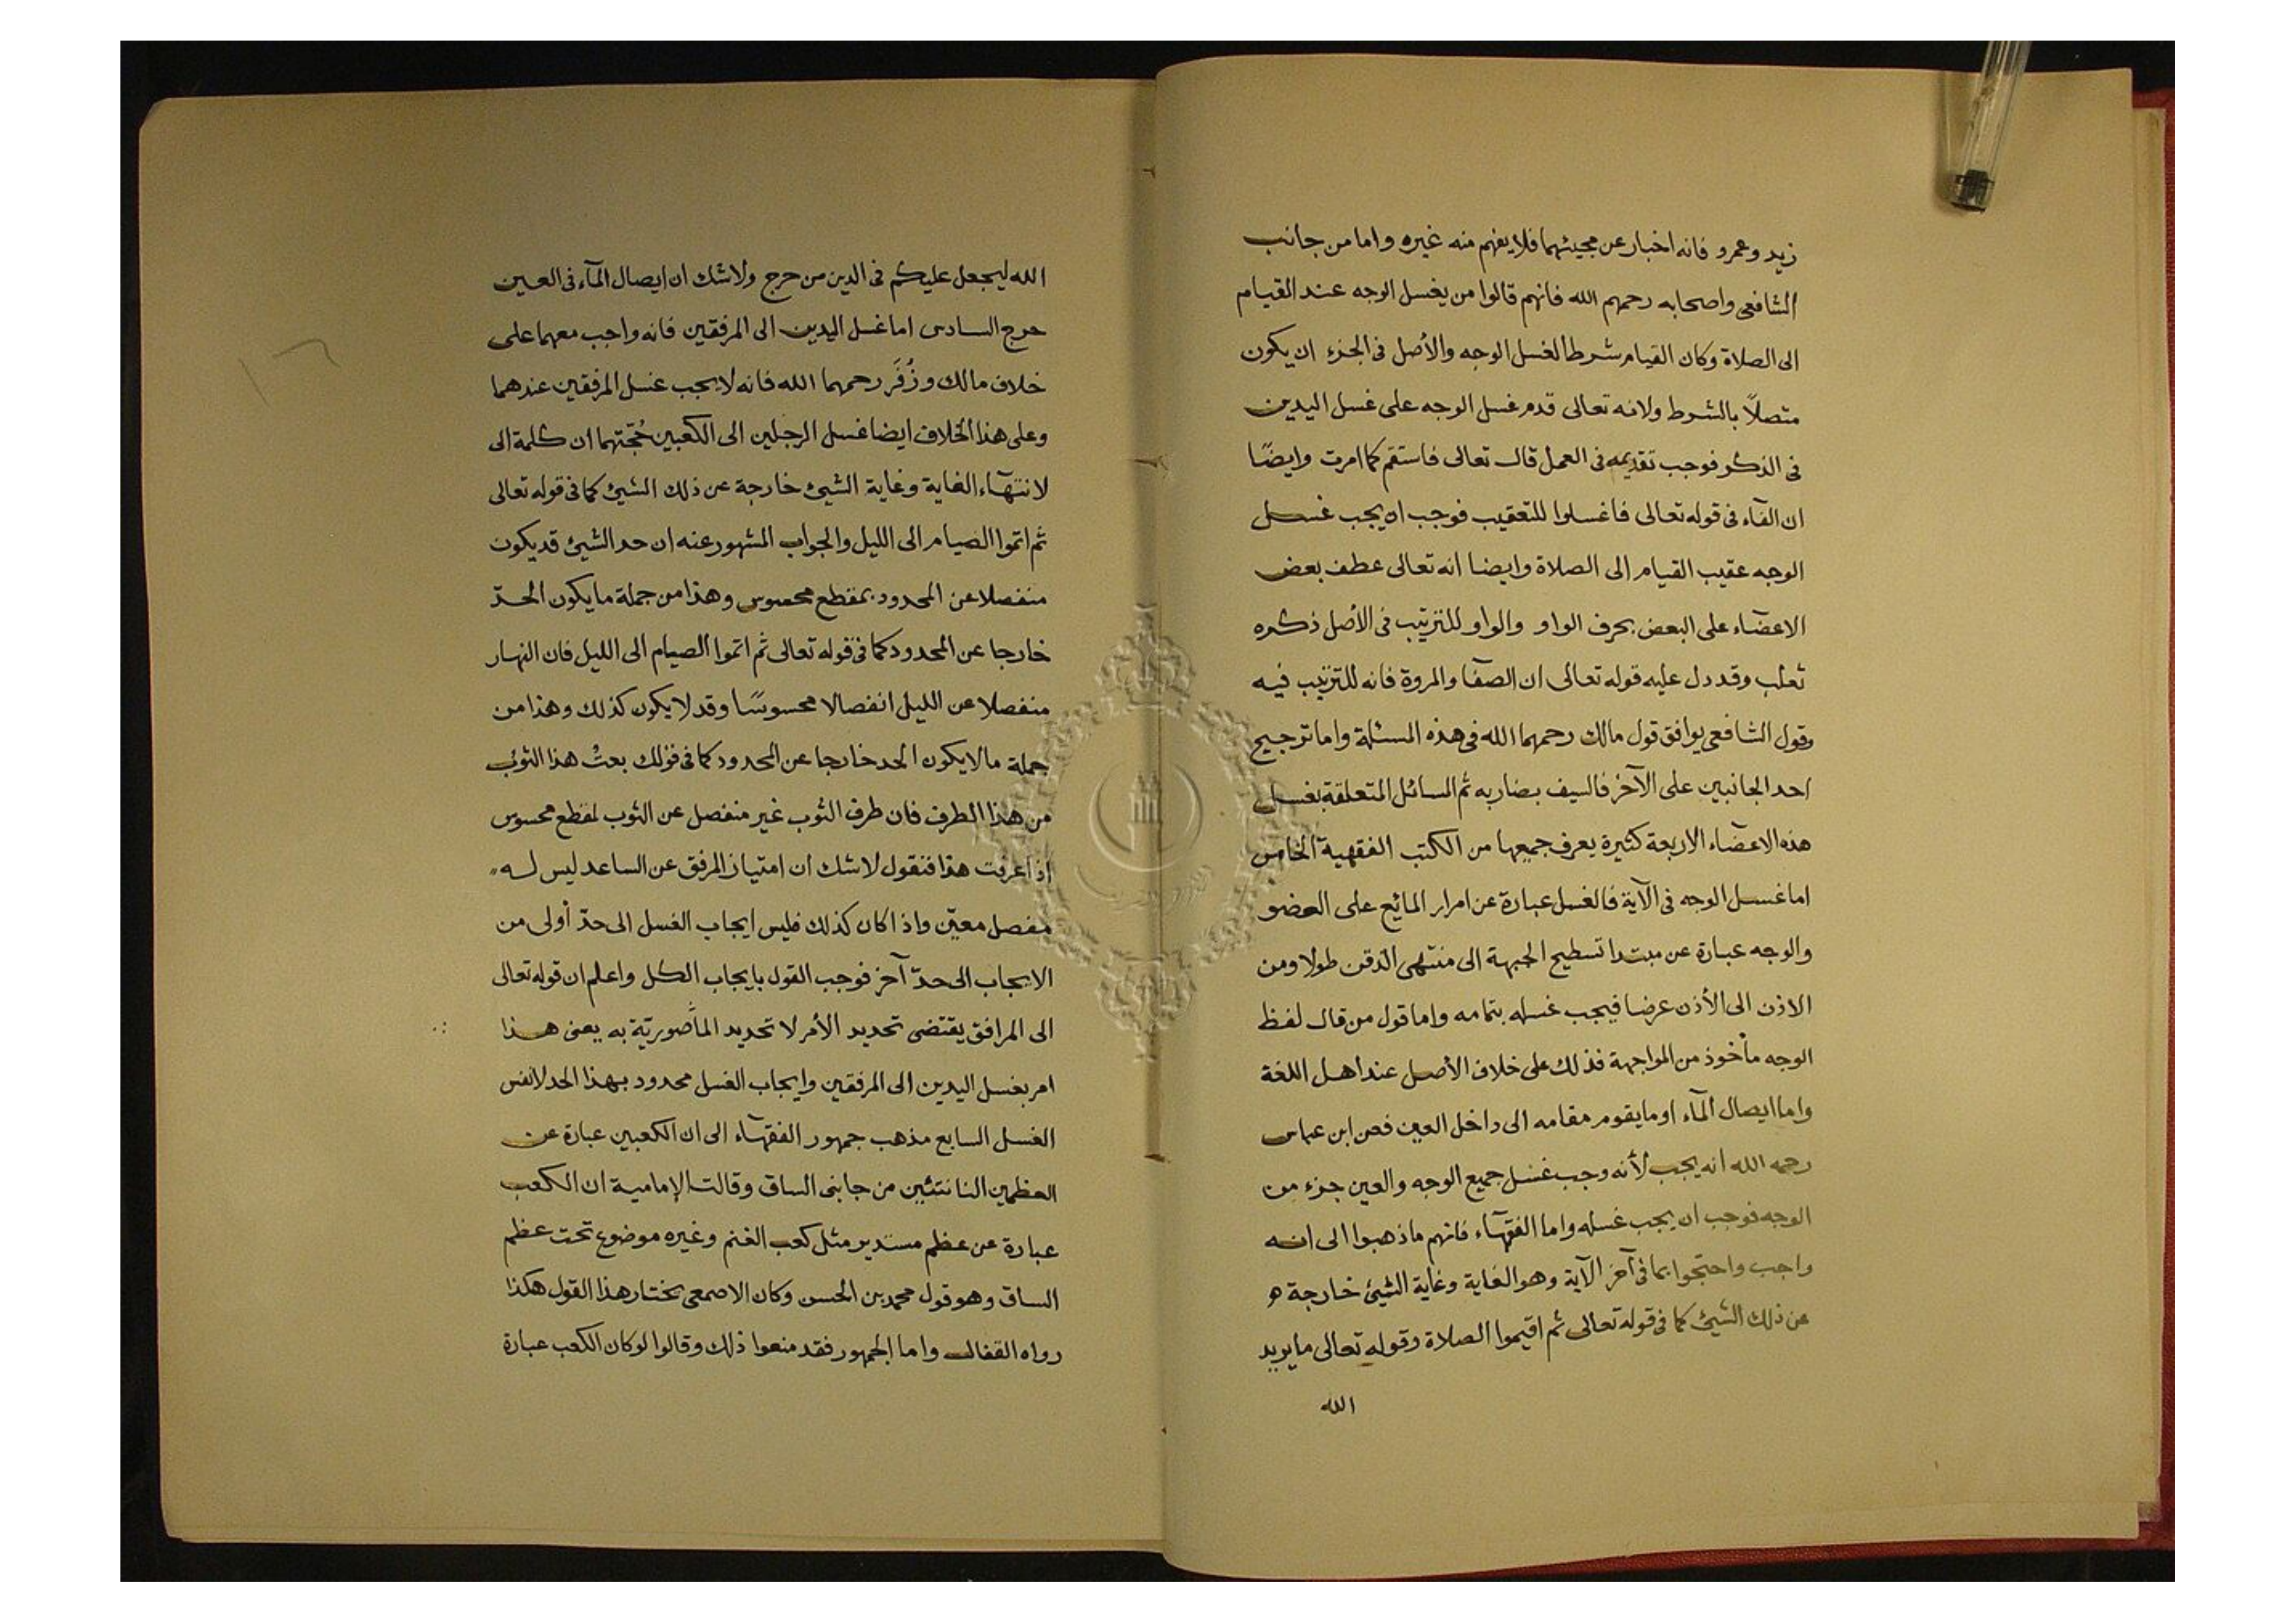 زيد وعمرو فانه اخبار عن مجيئهما فلا يفهم منه غيره واما من جانب
الشافعى واصحابه رحمهم الله فانهم قالوا من يغسل الوجه عند القيام
الى الصلاة وكان القيام شرطا لغسل الوجه والأصل فى الجزء ان يكون
متصلاً بالشرط ولانه تعالى قدم غسل الوجه على غسل اليدين
فى الذكر فوجب تقديمه فى العمل قال تعالى فاستقم كما امرت وايضًا
ان الفآء فى قوله تعالى فاغسلوا للتعقيب فوجب ان يجب غسل
الوجه عقيب القيام الى الصلاة وايضا انه تعالى عطف بعض
الاعضآء على البعض بحرف الواو والواو للترتيب فى الأصل ذكره
ثعلب وقد دل عليه قوله تعالى ان الصفا والمروة فانه للترتيب فيه
وقول الشافعى يوافق قول مالك رحمهما الله فى هذه المسئلة واما ترجيح
احد الجانبين على الآخر فالسيف بضاربه ثم المسائل المتعلقة بغسل
هذه الاعضآء الاربعة كثيرة يعرف جميعها من الكتب الفقهية الخامس
اما غسل الوجه فى الآية فالغسل عبارة عن امرار المائع على العضو
والوجه عبارة عن مبتدا تسطيح الجبهة الى منتهى الذقن طولا ومن
الاذن الى الأذن عرضا فيجب غسله بتمامه واما قول من قال لفظ
الوجه مأخوذ من المواجهة فذلك على خلاف الأصل عند اهل اللغة
واما ايصال المآء او ما يقوم مقامه الى داخل العين فعن ابن عباس
رحمه الله انه يجب لأنه وجب غسل جميع الوجه والعين جزء من
الوجه فوجب ان يجب غسله واما الفقهآء فانهم ما ذهبوا الى انه
واجب واحتجوا بما فى آخر الآية وهو الغاية وغاية الشيئ خارجة
عن ذلك الشيئ كما فى قوله تعالى ثم اقيموا الصلاة وقوله تعالى ما يريد
الله
الله ليجعل عليكم فى الدين من حرج ولا شك ان ايصال المآء فى العين
حرج السادس اما غسل اليدين الى المرفقين فانه واجب معهما على
خلاف مالك وزُفَر رحمهما الله فانه لا يجب غسل المرفقين عندهما
وعلى هذا الخلاف ايضا غسل الرجلين الى الكعبين حُجّتهما ان كلمة الى
لانتهآء الغاية وغاية الشيئ خارجة عن ذلك الشيئ كما فى قوله تعالى
ثم اتموا الصيام الى الليل والجواب المشهور عنه ان حد الشيئ قد يكون
منفصلا عن المحدود بمقطع محسوس وهذا من جملة ما يكون الحدّ
خارجا عن المحدود كما فى قوله تعالى ثم اتموا الصيام الى الليل فان النهار
منفصلا عن الليل انفصالا محسوسًا وقد لا يكون كذلك وهذا من
جملة ما لا يكون الحد خارجا عن المحدود كما فى قولك بعتُ هذا الثوب
من هذا الطرف فان طرف الثوب غير منفصل عن الثوب لمقطع محسوس
اذا عرفت هذا فنقول لا شك ان امتياز المرفق عن الساعد ليس له
مفصل معيّن واذا كان كذلك فليس ايجاب الغسل الى حدّ أولى من
الايجاب الى حدّ آخر فوجب القول بايجاب الكل واعلم ان قوله تعالى
الى المرافق يقتضى تحديد الأمر لا تحديد المأصوريّة به يعنى هذا
امر بغسل اليدين الى المرفقين وايجاب الغسل محدود بهذا الحد لا نفس
الغسل السابع مذهب جمهور الفقهآء الى ان الكعبين عبارة عن
العظمين الناتئين من جانبى الساق وقالت الإمامية ان الكعب
عبارة عن عظم مستدير مثل كعب الغنم وغيره موضوع تحت عظم
الساق وهو قول محمد بن الحسن وكان الاصمعى يختار هذا القول هكذا
رواه القفال واما الجمهور فقد منعوا ذلك وقالوا لو كان الكعب عبارة